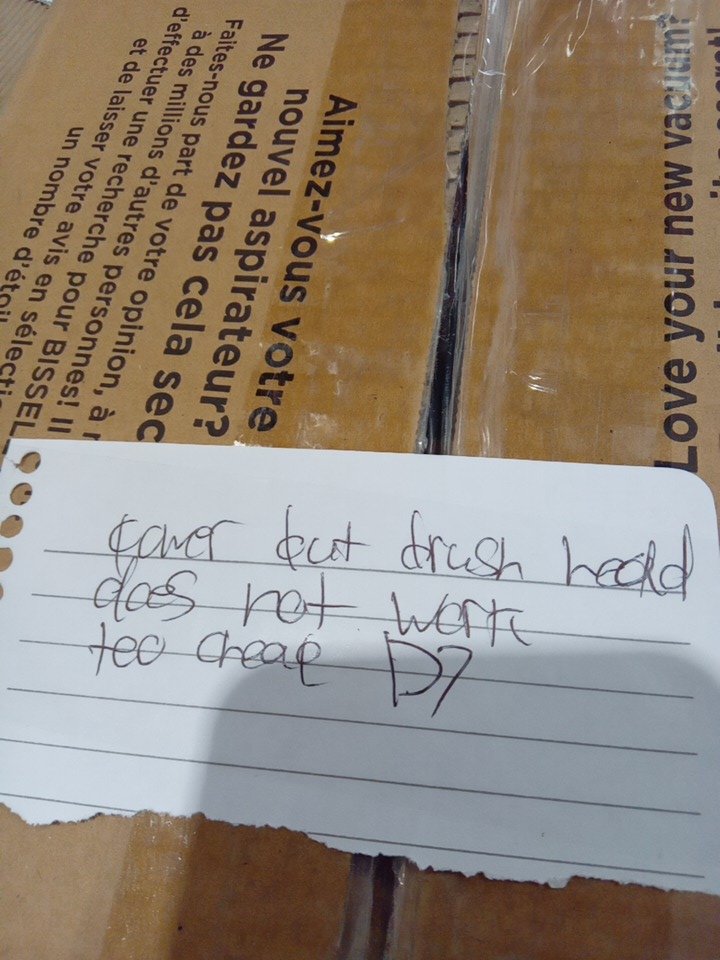 Aimez-vous votre
nouvel aspirateur?
Ne gardez pas cela sec
Faites-nous part de votre opinion, à
à des millions d'autres personnes! Il
d'effectuer une recherche pour BISSEL
et de laisser votre avis en sélecti
un nombre d'étoil
Love your new vacuum?
power but brush head
does not work
too cheap D7